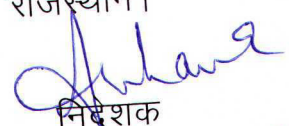 राजस्थान।
निदेशक